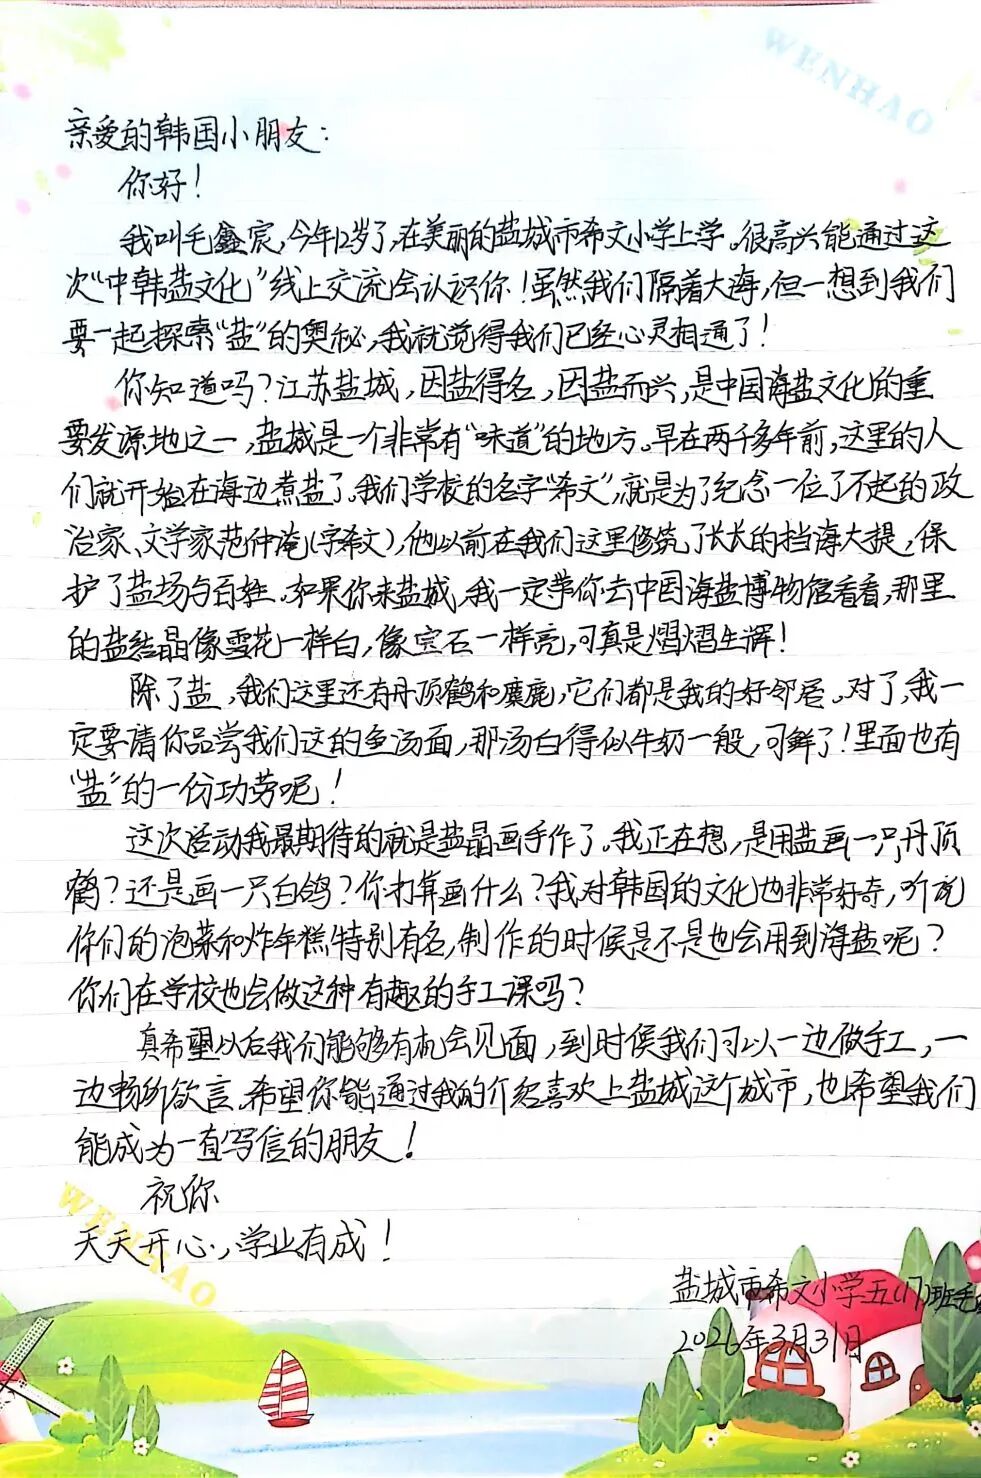 WENHAO
亲爱的韩国小朋友：
你好！
我叫毛鑫宸，今年12岁了，在美丽的盐城市希文小学上学。很高兴能通过这
次“中韩盐文化”线上交流会认识你！虽然我们隔着大海，但一想到我们
要一起探索“盐”的奥秘，我就觉得我们已经心灵相通了！
你知道吗？江苏盐城，因盐得名，因盐而兴，是中国海盐文化的重
要发源地之一，盐城是一个非常有“味道”的地方。早在两千多年前，这里的人
们就开始在海边煮盐了。我们学校的名字“希文”，就是为了纪念一位了不起的政
治家、文学家范仲淹（字希文），他以前在我们这里修筑了长长的挡海大提，保
护了盐场与百姓。如果你来盐城，我一定带你去中国海盐博物馆看看，那里
的盐结晶像雪花一样白，像宝石一样亮，可真是熠熠生辉！
除了盐，我们这里还有丹顶鹤和麋鹿，它们都是我的好邻居。对了，我一
定要请你品尝我们这的鱼汤面，那汤白得似牛奶一般，可鲜了！里面也有
“盐”的一份功劳呢！
这次活动我最期待的就是盐晶画手作了。我正在想，是用盐画一只丹顶
鹤？还是画一只白鸽？你打算画什么？我对韩国的文化也非常好奇，听说
你们的泡菜和炸年糕特别有名，制作的时候是不是也会用到海盐呢？
你们在学校也会做这种有趣的手工课吗？
真希望以后我们能够有机会见面，到时候我们可以一边做手工，一
边畅所欲言。希望你能通过我的介绍喜欢上盐城这个城市，也希望我们
能成为一直写信的朋友！
祝你
天天开心，学业有成！
WENHAO
盐城市希文小学五（17）班毛
2026年3月31日